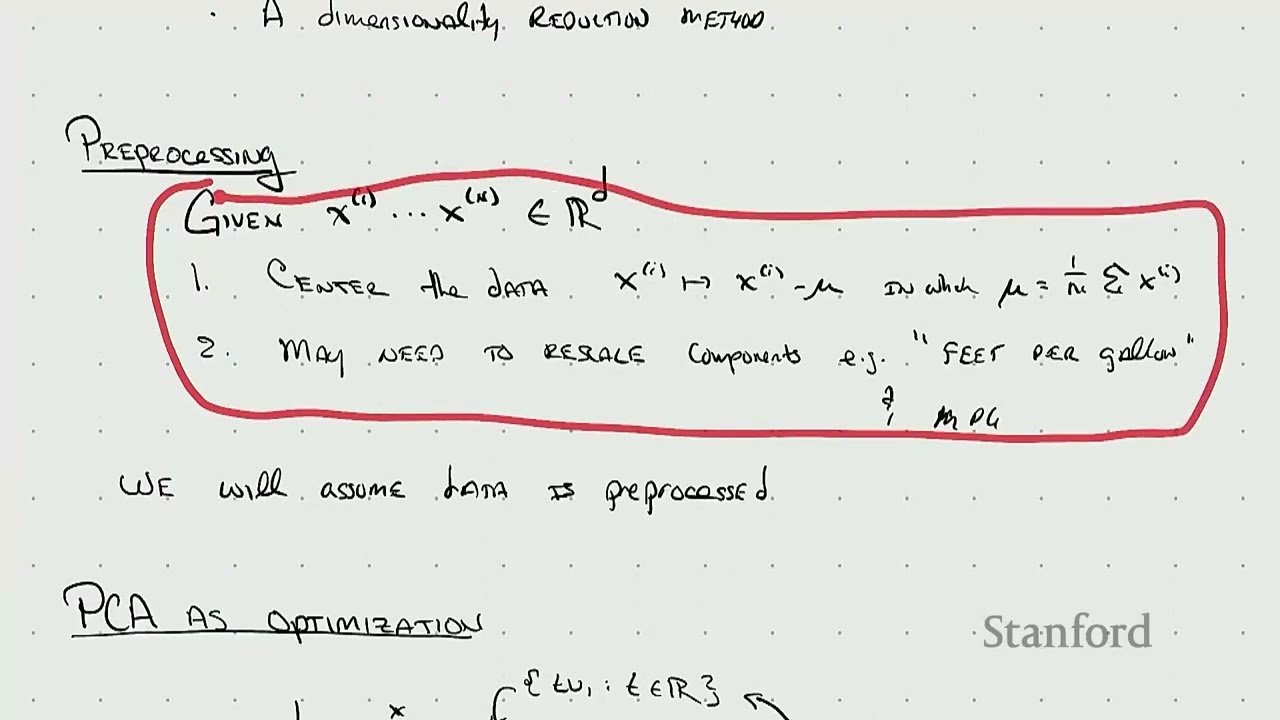 · A dimensionality REDUCTION METHOD.
PREPROCESSING
GIVEN x^(1) ... x^(n) ∈ ℝ^d
1. CENTER the DATA x^(i) ↦ x^(i) - μ IN which μ = 1/n Σ x^(i)
2. MAY NEED TO RESCALE Components e.g. "FEET PER gallon"
& MPG
WE will assume DATA IS preprocessed
PCA AS OPTIMIZATION
Stanford
{tu₁ : t ∈ ℝ}
x